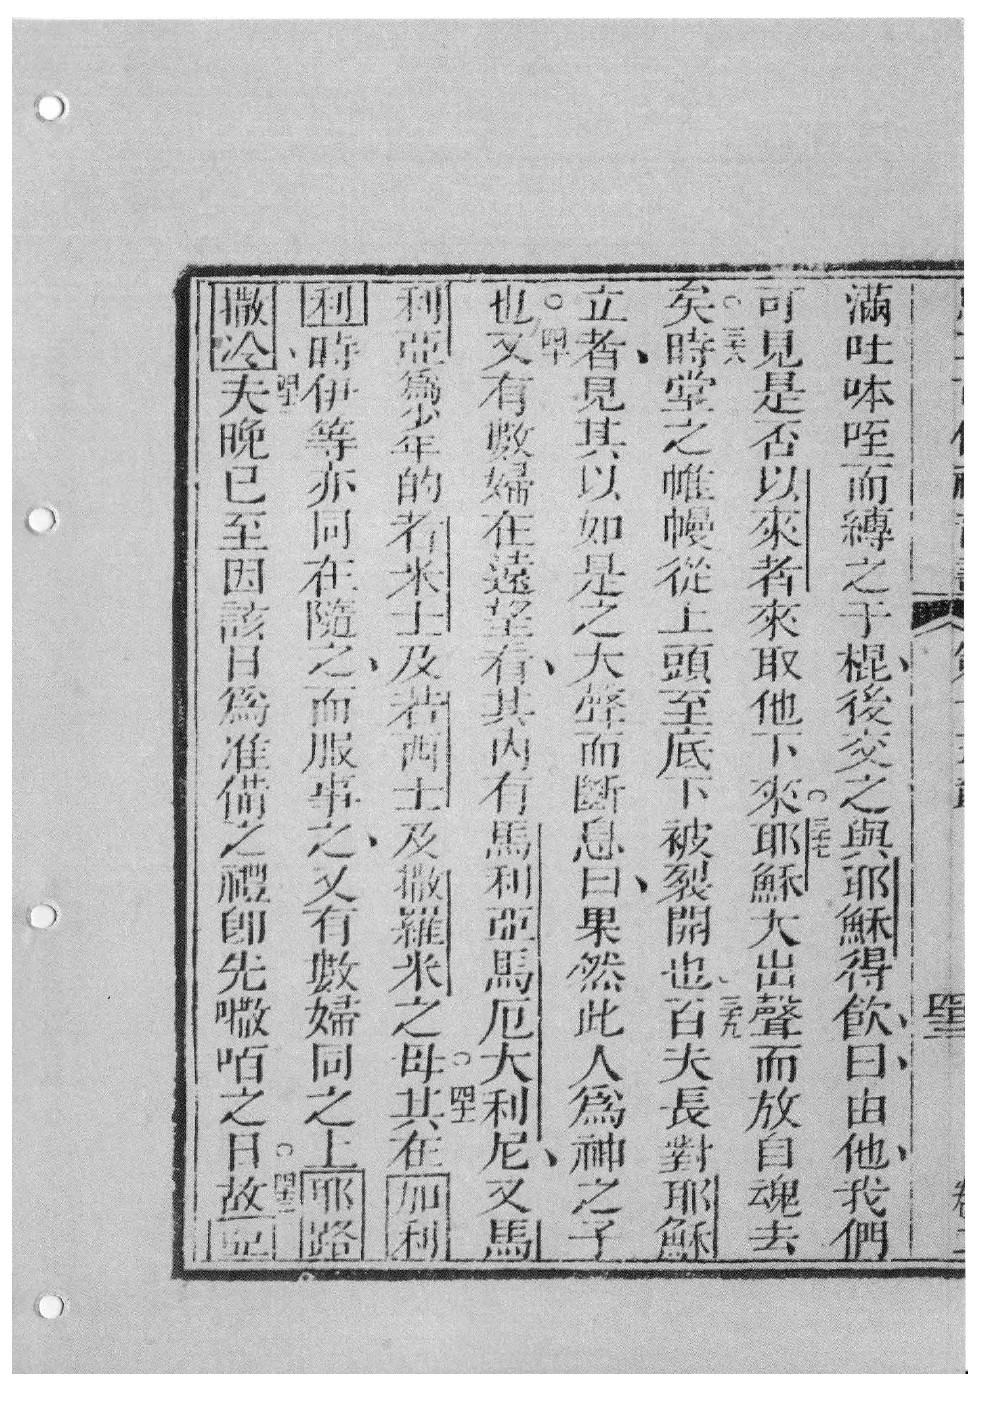 滿吐呠咥而縳之于棍、後交之與耶穌得飲、曰、由他、我們
可見是否以來者來取他下來三七耶穌大出聲而放自魂去
矣三八時堂之帷幔從上頭至底下被裂開也、三九百夫長對耶穌
立者、見其以如是之大聲而斷息曰、果然此人爲神之子
也四十又有數婦在遠望看、其內有馬利亞馬厄大利尼、又馬
利亞爲少年的者米士及若西士及撒羅米之母四一其在加利
利時伊等亦同在隨之、而服事之、又有數婦同之上耶路
撒冷、四二夫晚已至因該日爲准備之禮卽先嘞咟之日四三故亞